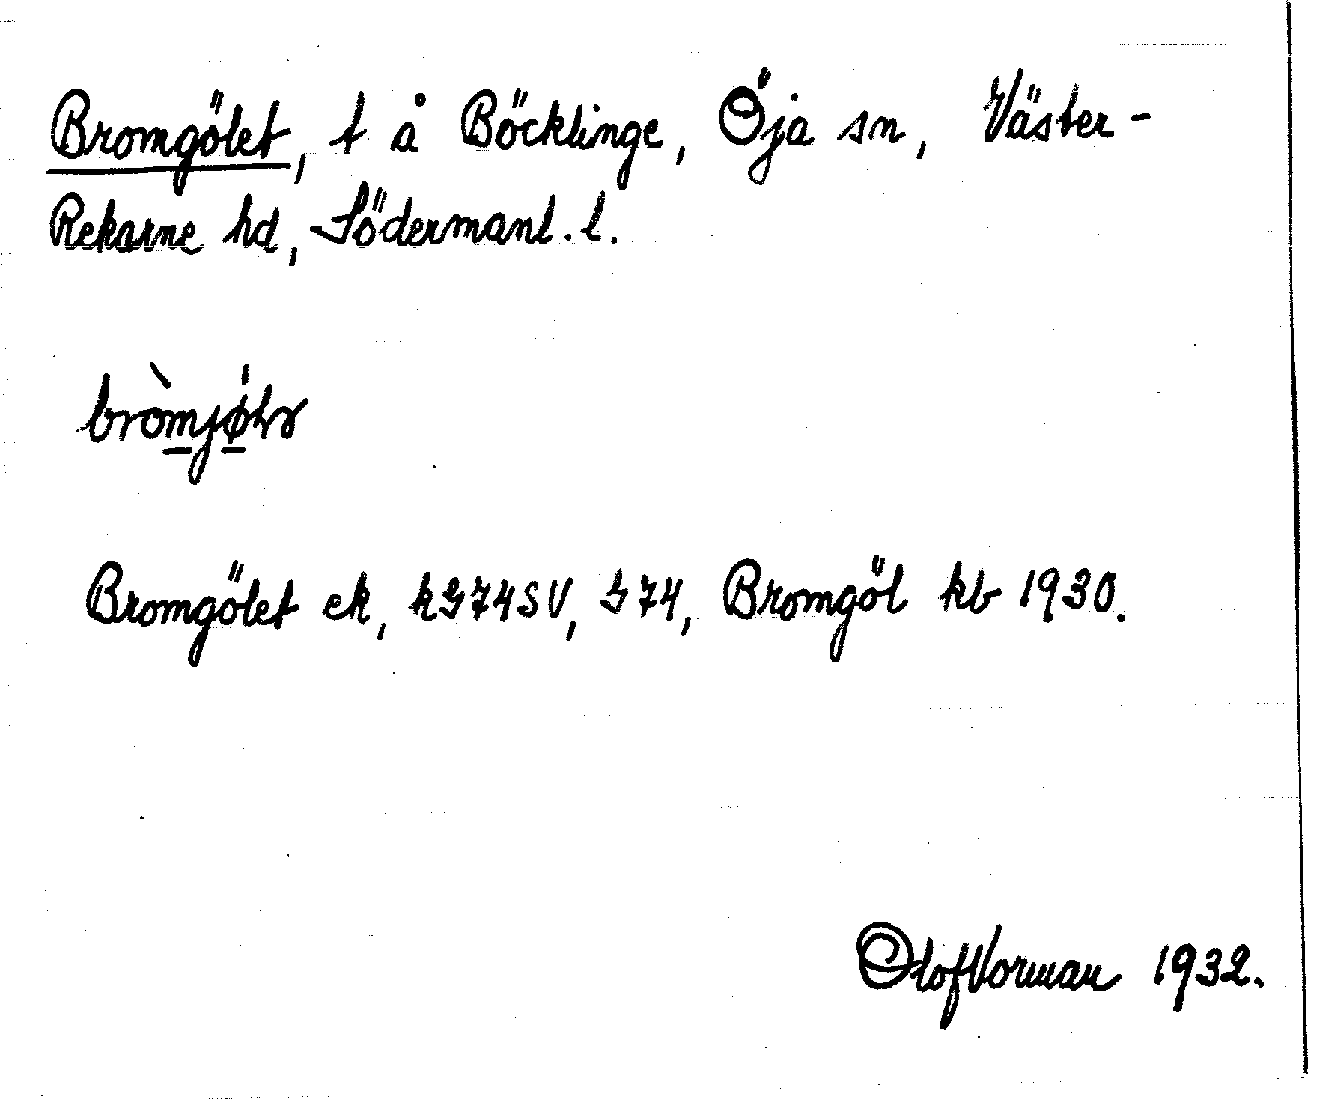 Bromgölet, t å Böcklinge, Öja sn, Väster-
Rekarne hd, Södermanl. l.
Bromgölet ek, kG74SV, J74, Bromgöl kb 1930.
Olof Vorman 1932.